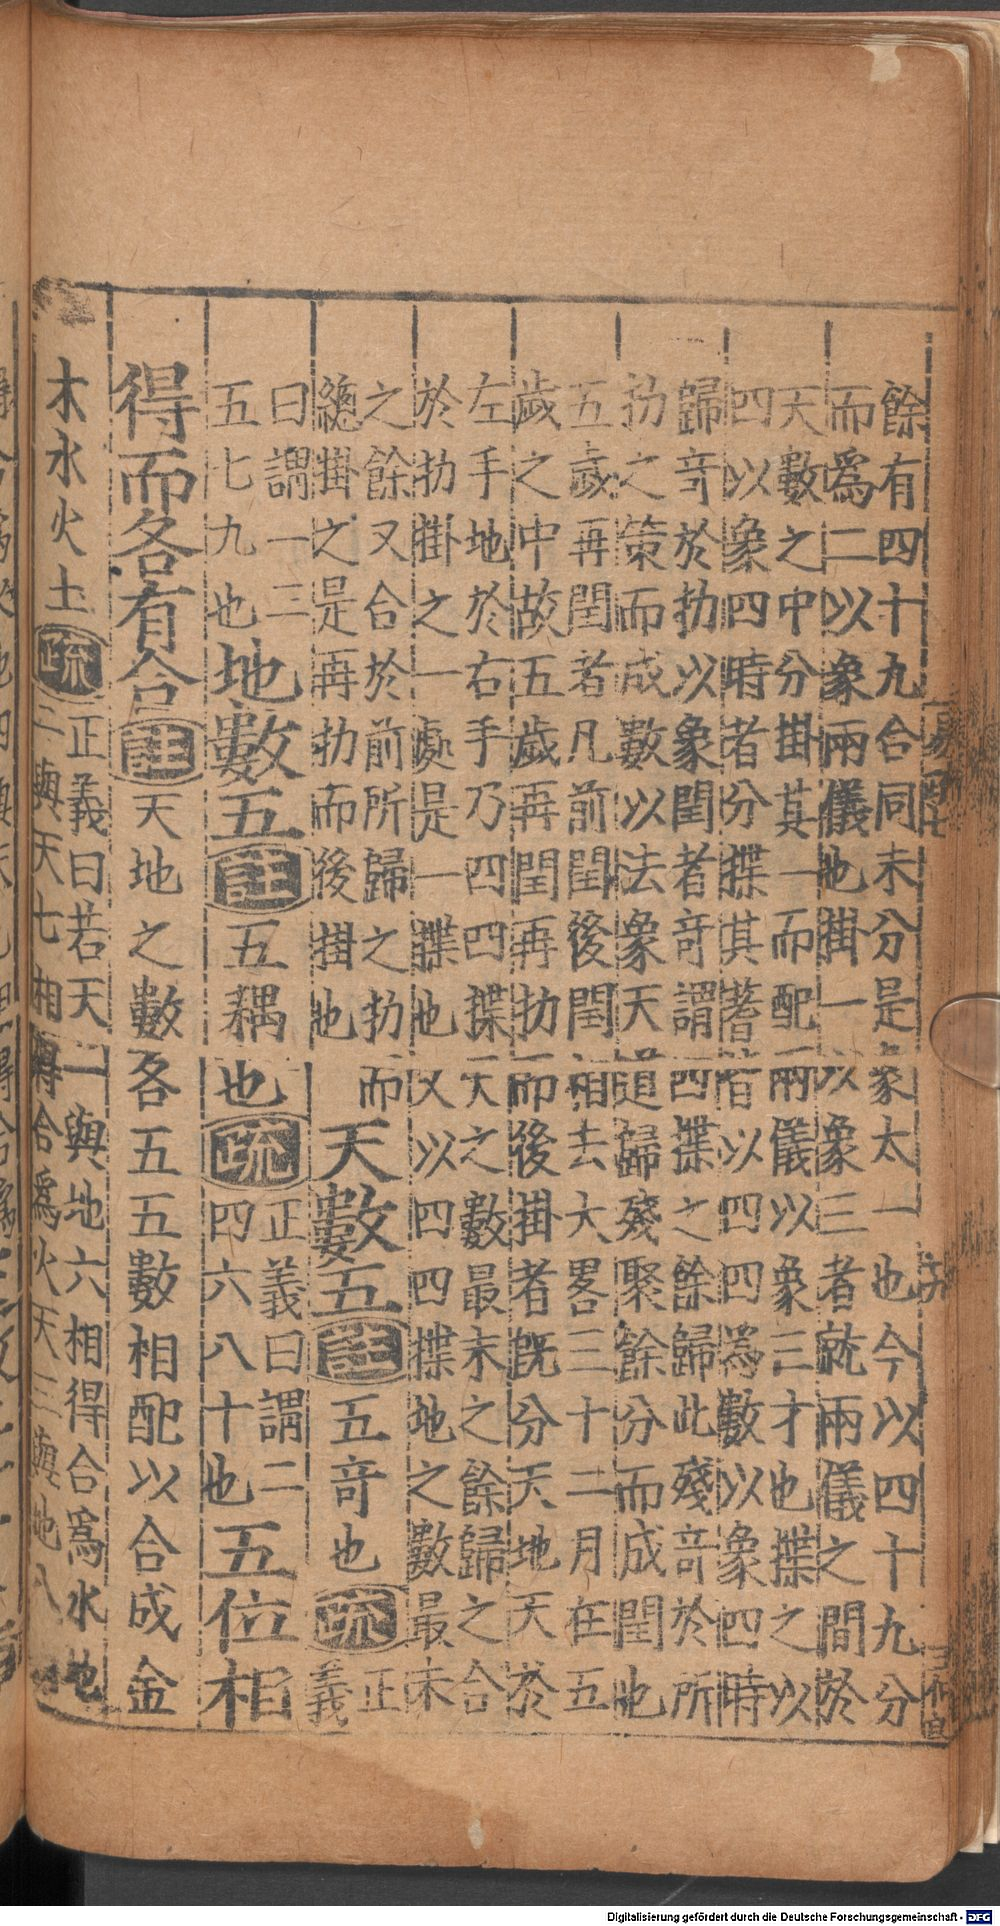 餘有四十九合同未分是象太一也今以四十九分
而爲二以象兩儀也掛一以象三者就兩儀之間於
天數之中分掛其一而配兩儀以象三才也揲之以
四以象四時者分揲其蓍皆以四四爲數以象四時
歸奇於扐以象閏者奇謂四揲之餘歸此殘奇於所
扐之策而成數以法象天道歸殘聚餘分而成閏也
五歲再閏者凡前閏後閏相去大畧三十二月在五
歲之中故五歲再閏再扐而後掛者旣分天地天於
左手地於右手乃四四揲天之數最末之餘歸之合
於扐掛之一處是一揲也又以四四揲地之數最末
之餘又合於前所歸之扐而
總掛之是再扐而後掛也
天數五註五奇也疏正
義
曰謂一三
五七九也
地數五註五耦也疏正義曰謂二
四六八十也
五位相
得而各有合註天地之數各五五數相配以合成金
木水火土疏正義曰若天一與地六相得合爲水地
二與天七相得合爲火天三與地八
Digitalisierung gefördert durch die Deutsche Forschungsgemeinschaft - DFG